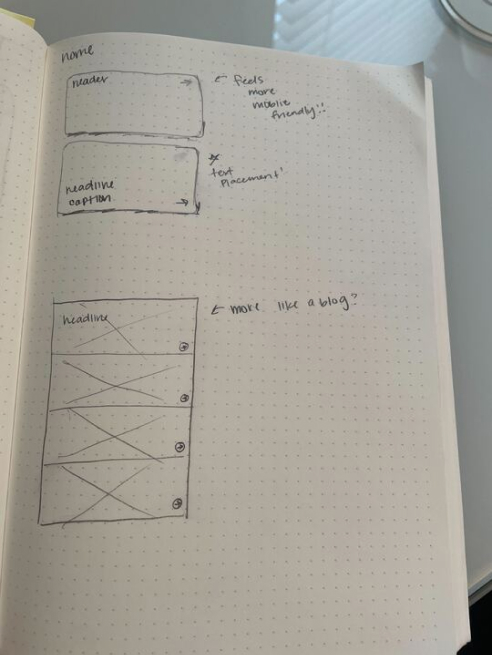 home
header
← feels
more
mobile
friendly!!
headline
caption
* text
placement!
headline
← more like a blog?